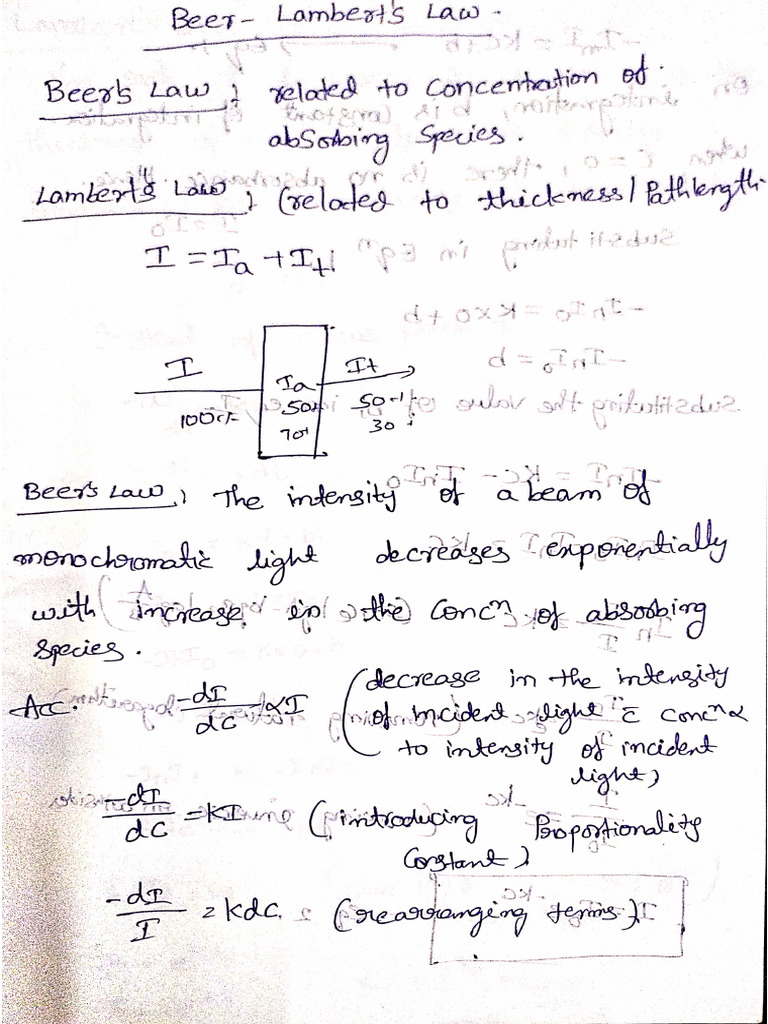 Beer-Lambert's Law -
Beer's Law ; related to concentration of
absorbing species.
Lambert's Law ; (related to thickness/Pathlength
I = Ia + It.
I
Ia
It
100%
50%
50%
70%
30
Beer's Law ; The intensity of a beam of
monochromatic light decreases exponentially
with increase in the concⁿ of absorbing
species.
Acc. -dI/dC ∝ I (decrease in the intensity
of incident light c̄ concⁿ ∝
to intensity of incident
light)
-dI/dC = KI (introducing Proportionality
Constant)
-dI/I = Kdc. (rearranging terms)